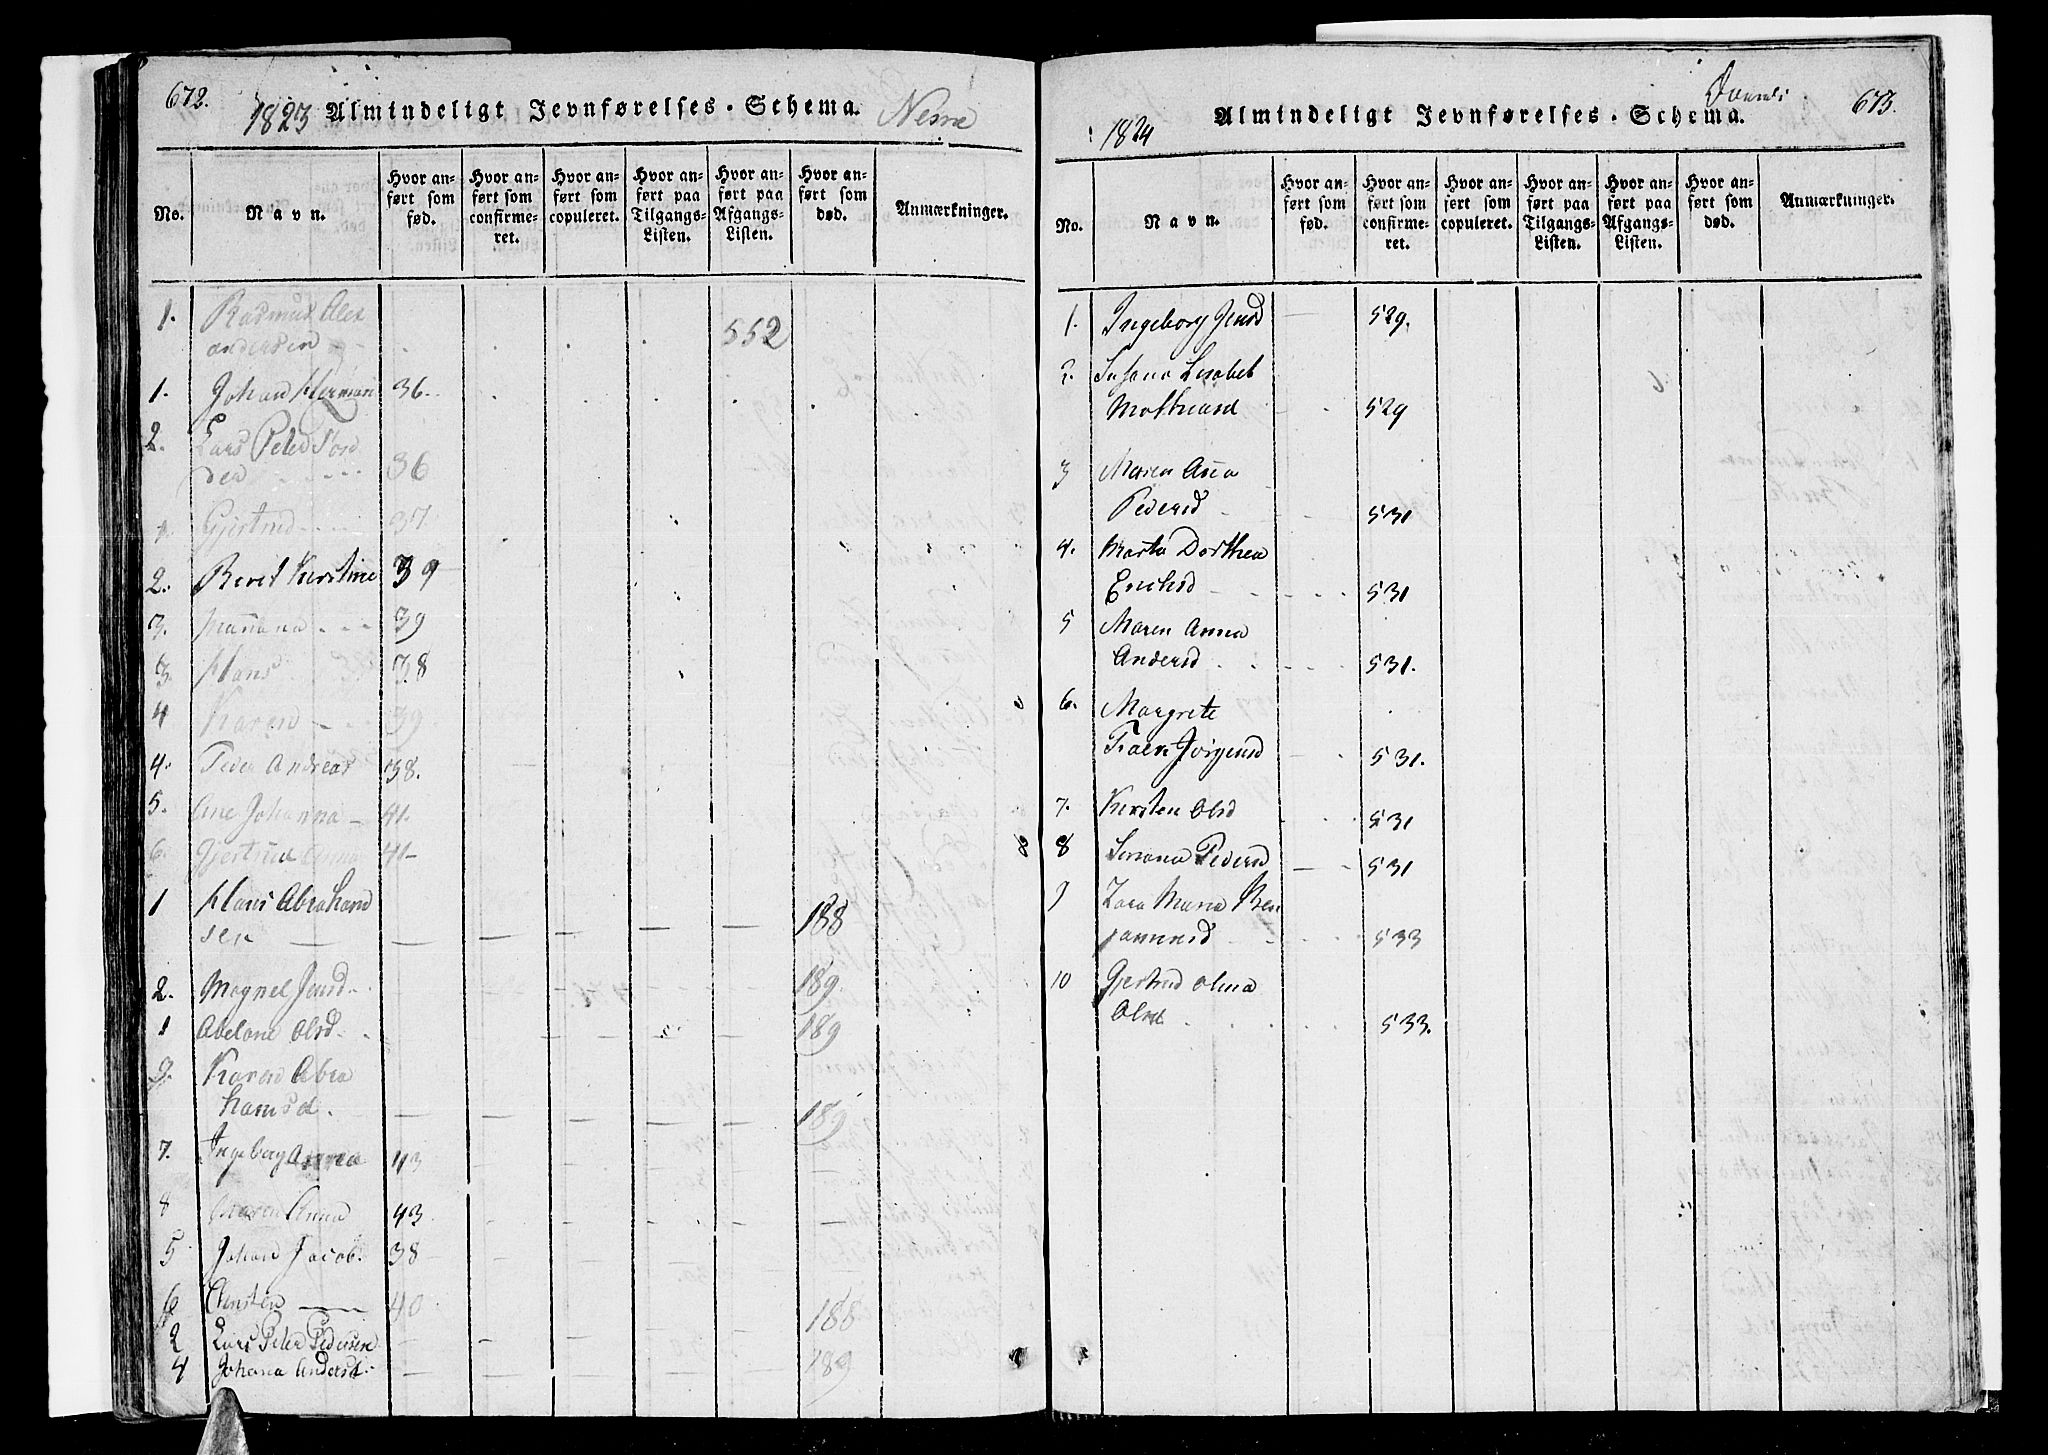 672.
1823 Almindeligt Jevnførelses-Schema. Nesne
No.
Navn.
Hvor anført som fød.
Hvor anført som confirmeret.
Hvor anført som copuleret.
Hvor anført paa Tilgangs-Listen.
Hvor anført paa Afgangs-Listen.
Hvor anført som død.
Anmærkninger.
1. Rasmus Alex
andersen 552
1. Johan Herman 36.
2. Lars Peter
36
Gjertrud 37
2. Berit Kirstine 39
3. 39
3. Hans 38
4 Karen 39
4. Peder Andreas 38.
5. Ane Johanna 41.
6. Gjertrud Anna 41
1 Hans Abraham
sen 188
2. Magnel Jensd 189.
1 Abelone Olsd 189
3. Karen Abra
hamsd. 189
7. Ingeborg Anna 43
8 Maren Anna 43
5 Johan Jacob. 38
6 40
188
2 Lars Peter Pedersen
4 Johana Andersd. 189
673.
1824 Almindeligt Jevnførelses-Schema.
No.
Navn.
Hvor anført som fød.
Hvor anført som confirmeret.
Hvor anført som copuleret.
Hvor anført paa Tilgangs-Listen.
Hvor anført paa Afgangs-Listen.
Hvor anført som død.
Anmærkninger.
1. Ingeborg Jensd 529.
2. Susana Lisabet
529
3 Maren Ana
Pedersd 531
4. Marta Dorthea
Erichsd 531
5 Maren Anna
Andersd 531.
6. Margrete
Jørgensd 531.
7. Kirsten Olsd 531
8 8 Pedersd 531
9 Maria Ben
jaminsd 533
10 Gjertrud
Olsd 533.